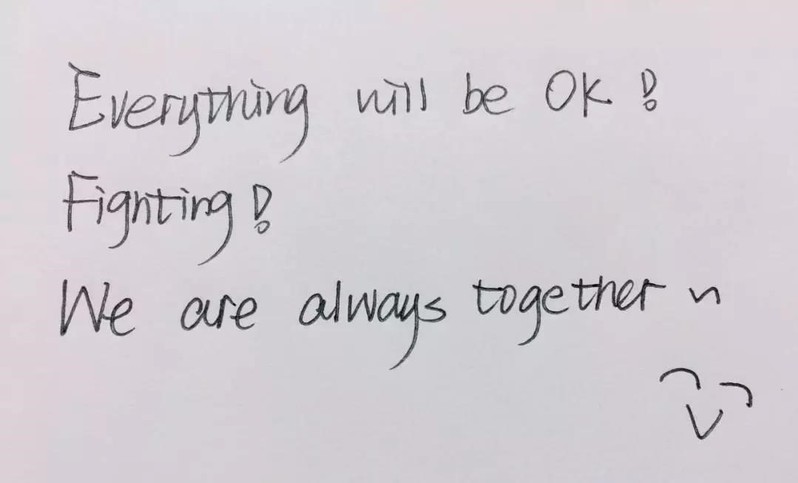 Everything will be OK!
Fighting!
We are always together ~